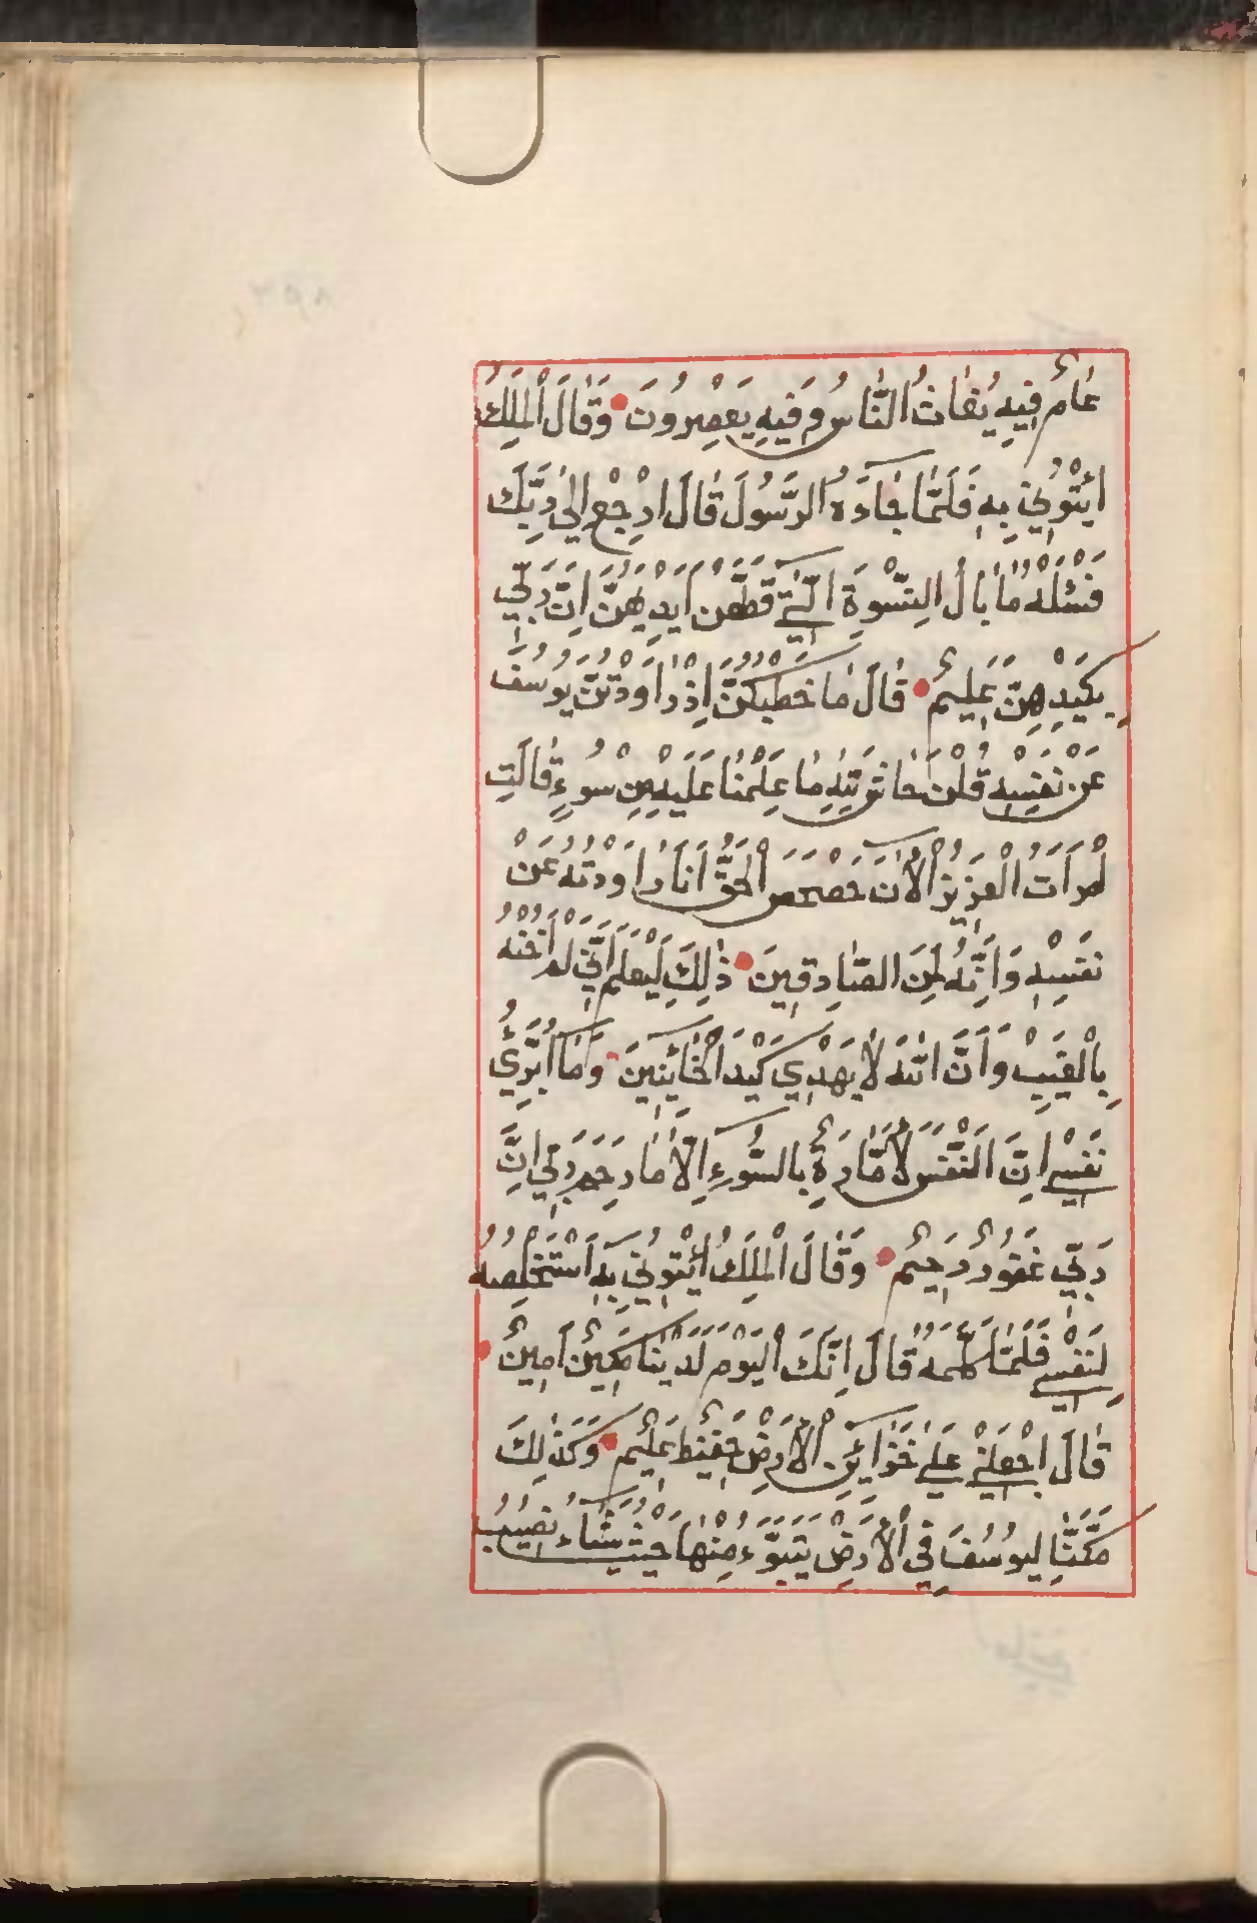 عَامٌ فِيهِ يُغَاثُ النَّاسُ وَفِيهِ يَعْصِرُونَ وَقَالَ الْمَلِكُ
ائْتُونِي بِهِ فَلَمَّا جَاءَهُ الرَّسُولُ قَالَ ارْجِعْ إِلَى رَبِّكَ
فَسْئَلْهُ مَا بَالُ النِّسْوَةِ الّٰتِي قَطَّعْنَ أَيْدِيَهُنَّ إِنَّ رَبِّي
بِكَيْدِهِنَّ عَلِيمٌ قَالَ مَا خَطْبُكُنَّ إِذْ رَاوَدْتُنَّ يُوسُفَ
عَنْ نَفْسِهِ قُلْنَ حَاشَ لِلّٰهِ مَا عَلِمْنَا عَلَيْهِ مِنْ سُوءٍ قَالَتِ
امْرَأَتُ الْعَزِيزِ الْاٰنَ حَصْحَصَ الْحَقُّ أَنَا رَاوَدْتُهُ عَنْ
نَفْسِهِ وَإِنَّهُ لَمِنَ الصَّادِقِينَ ذٰلِكَ لِيَعْلَمَ أَنِّي لَمْ أَخُنْهُ
بِالْغَيْبِ وَأَنَّ اللّٰهَ لَا يَهْدِي كَيْدَ الْخَائِنِينَ وَمَا أُبَرِّئُ
نَفْسِي إِنَّ النَّفْسَ لَأَمَّارَةٌ بِالسُّوءِ إِلَّا مَا رَحِمَ رَبِّي إِنَّ
رَبِّي غَفُورٌ رَحِيمٌ وَقَالَ الْمَلِكُ ائْتُونِي بِهِ أَسْتَخْلِصْهُ
لِنَفْسِي فَلَمَّا كَلَّمَهُ قَالَ إِنَّكَ الْيَوْمَ لَدَيْنَا مَكِينٌ أَمِينٌ
قَالَ اجْعَلْنِي عَلَى خَزَائِنِ الْأَرْضِ حَفِيظٌ عَلِيمٌ وَكَذٰلِكَ
مَكَّنَّا لِيُوسُفَ فِي الْأَرْضِ يَتَبَوَّءُ مِنْهَا حَيْثُ يَشَاءُ نُصِيبُ